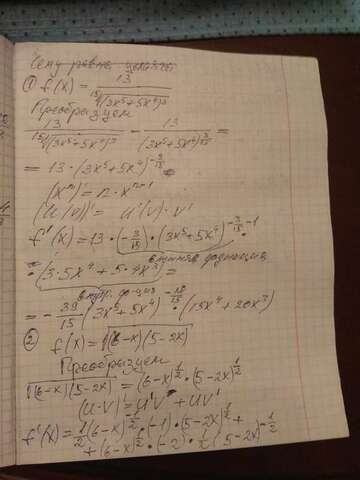 ① f(x) = 13 / ¹⁵√(3x⁵+5x⁴)³
Преобразуем
13 / ¹⁵√(3x⁵+5x⁴)³ = 13 / (3x⁵+5x⁴)^(3/15) =
= 13 · (3x⁵+5x⁴)^(-3/15)
(xⁿ)' = n · xⁿ⁻¹
(u(v))' = u'(v) · v'
f'(x) = 13 · (-3/15) · (3x⁵+5x⁴)^(-3/15 - 1) ·
внешняя функция
· (3·5x⁴ + 5·4x³) =
внутр. ф-ция
= -39/15 (3x⁵+5x⁴)^(-18/15) · (15x⁴+20x³)
② f(x) = √(6-x)(5-2x)
Преобразуем
√(6-x)(5-2x) = (6-x)^(1/2) · (5-2x)^(1/2)
(u·v)' = u'v + uv'
f'(x) = 1/2 (6-x)^(-1/2) · (-1) · (5-2x)^(1/2) +
+ (6-x)^(1/2) · (-2) · 1/2 (5-2x)^(-1/2)